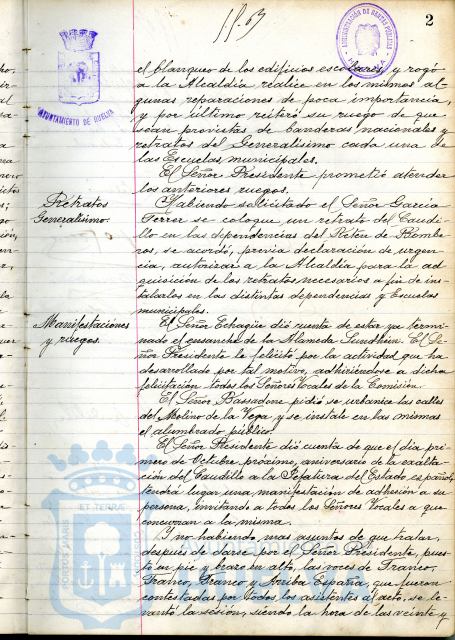 2
ADMINISTRACIÓN DE RENTAS PÚBLICAS
AYUNTAMIENTO DE HUELVA
el blanqueo de los edificios escolares, y rogó
a la Alcaldía realice en los mismos al-
gunas reparaciones de poca importancia,
y por último reiteró su ruego de que
sean provistas de banderas nacionales y
retratos del Generalísimo cada una de
las Escuelas municipales.
El Señor Presidente prometió atender
los anteriores ruegos.
Retratos
Generalísimo
Habiendo solicitado el Señor García
Ferrer se coloque un retrato del Caudi-
llo en las dependencias del Retén de Bombe-
ros, se acordó, previa declaración de urgen-
cia, autorizar a la Alcaldía para la ad-
quisición de los retratos necesarios a fin de ins-
talarlos en las distintas dependencias y Escuelas
municipales.
Manifestaciones
y ruegos.
El Señor Echagüe dió cuenta de estar ya termi-
nado el ensanche de la Alameda Sundheim. El Se-
ñor Presidente le felicitó por la actividad que ha
desarrollado por tal motivo, adhiriéndose a dicha
felicitación todos los Señores Vocales de la Comisión.
El Señor Bassadone pidió se urbanice las calles
del Molino de la Vega, y se instale en las mismas
el alumbrado público.
El Señor Presidente dió cuenta de que el día pri-
mero de Octubre próximo, aniversario de la exalta-
ción del Caudillo a la Jefatura del Estado español,
tendrá lugar una manifestación de adhesión a su
persona, invitando a todos los Señores Vocales a que
concurran a la misma.
Y no habiendo más asuntos de que tratar,
después de darse por el Señor Presidente, pues-
to en pie y brazo en alto, las voces de Franco,
Franco, Franco y Arriba España, que fueron
contestadas por todos los asistentes al acto, se le-
vantó la sesión, siendo la hora de las veinte y